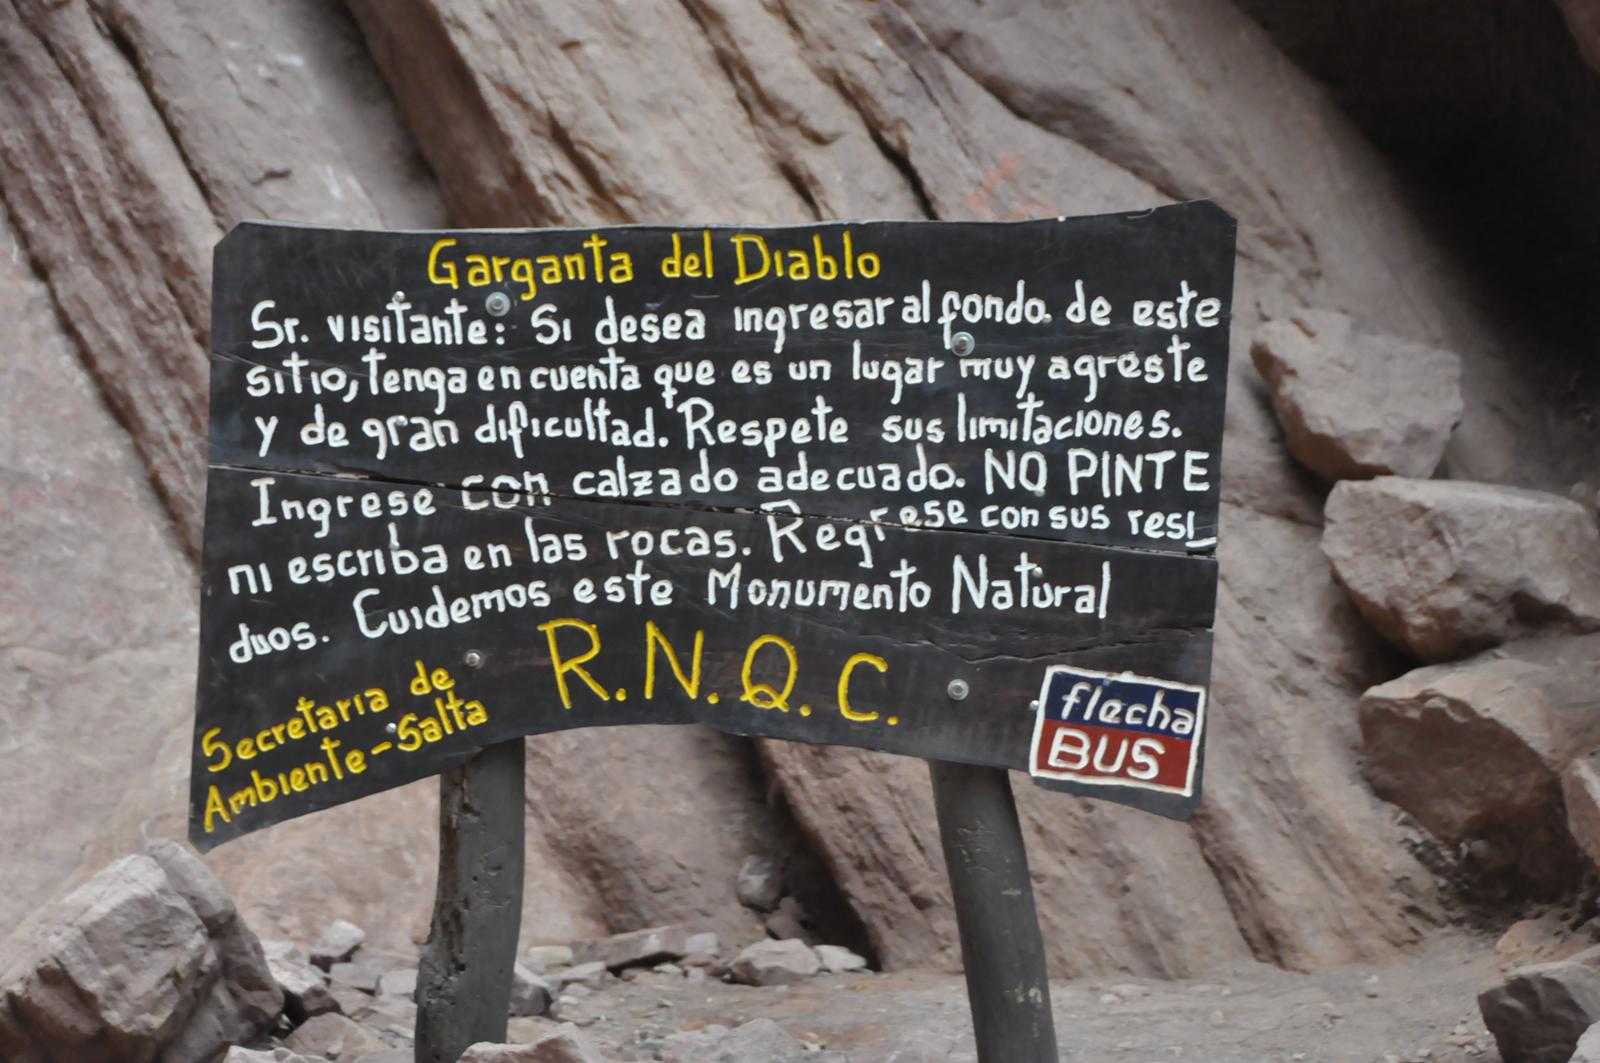 Garganta del Diablo
Sr. visitante: Si desea ingresar al fondo de este
sitio, tenga en cuenta que es un lugar muy agreste
y de gran dificultad. Respete sus limitaciones.
Ingrese con calzado adecuado. NO PINTE
ni escriba en las rocas. Regrese con sus resi_
duos. Cuidemos este Monumento Natural
R.N.Q.C.
Secretaria de
Ambiente-Salta
flecha
BUS